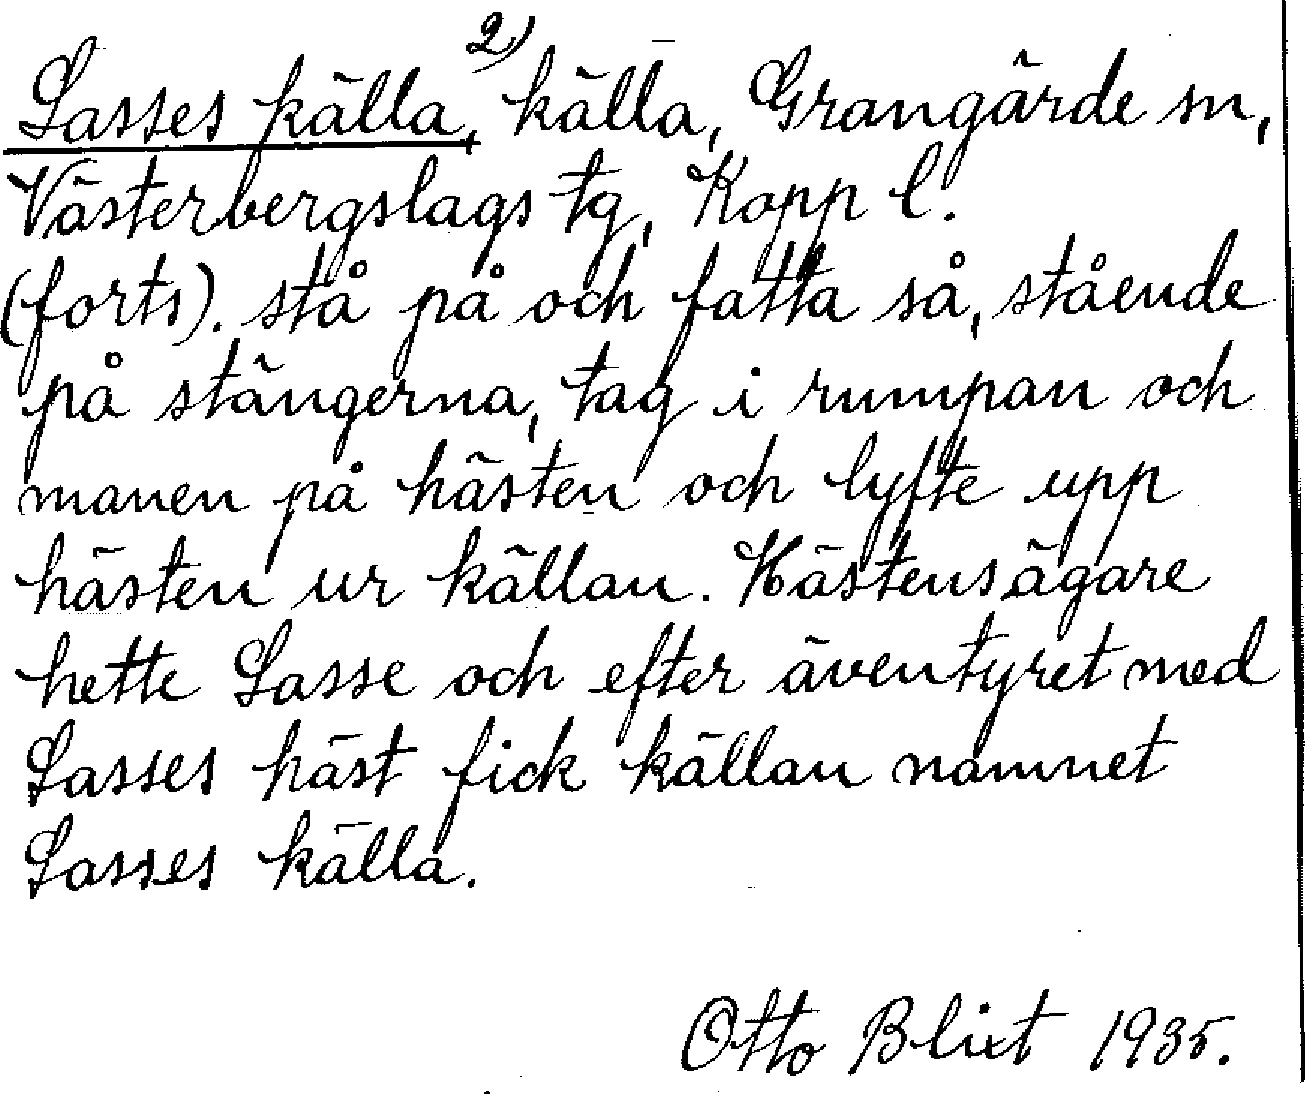 Lasses källa, 2) källa, Grangärde sn,
Västerbergslags tg, Kopp l.
(forts). stå på och fatta så, stående
på stängerna, tag i rumpan och
manen på hästen och lyfte upp
hästen ur källan. Hästens ägare
hette Lasse och efter äventyret med
Lasses häst fick källan namnet
Lasses källa.
Otto Blixt 1935.